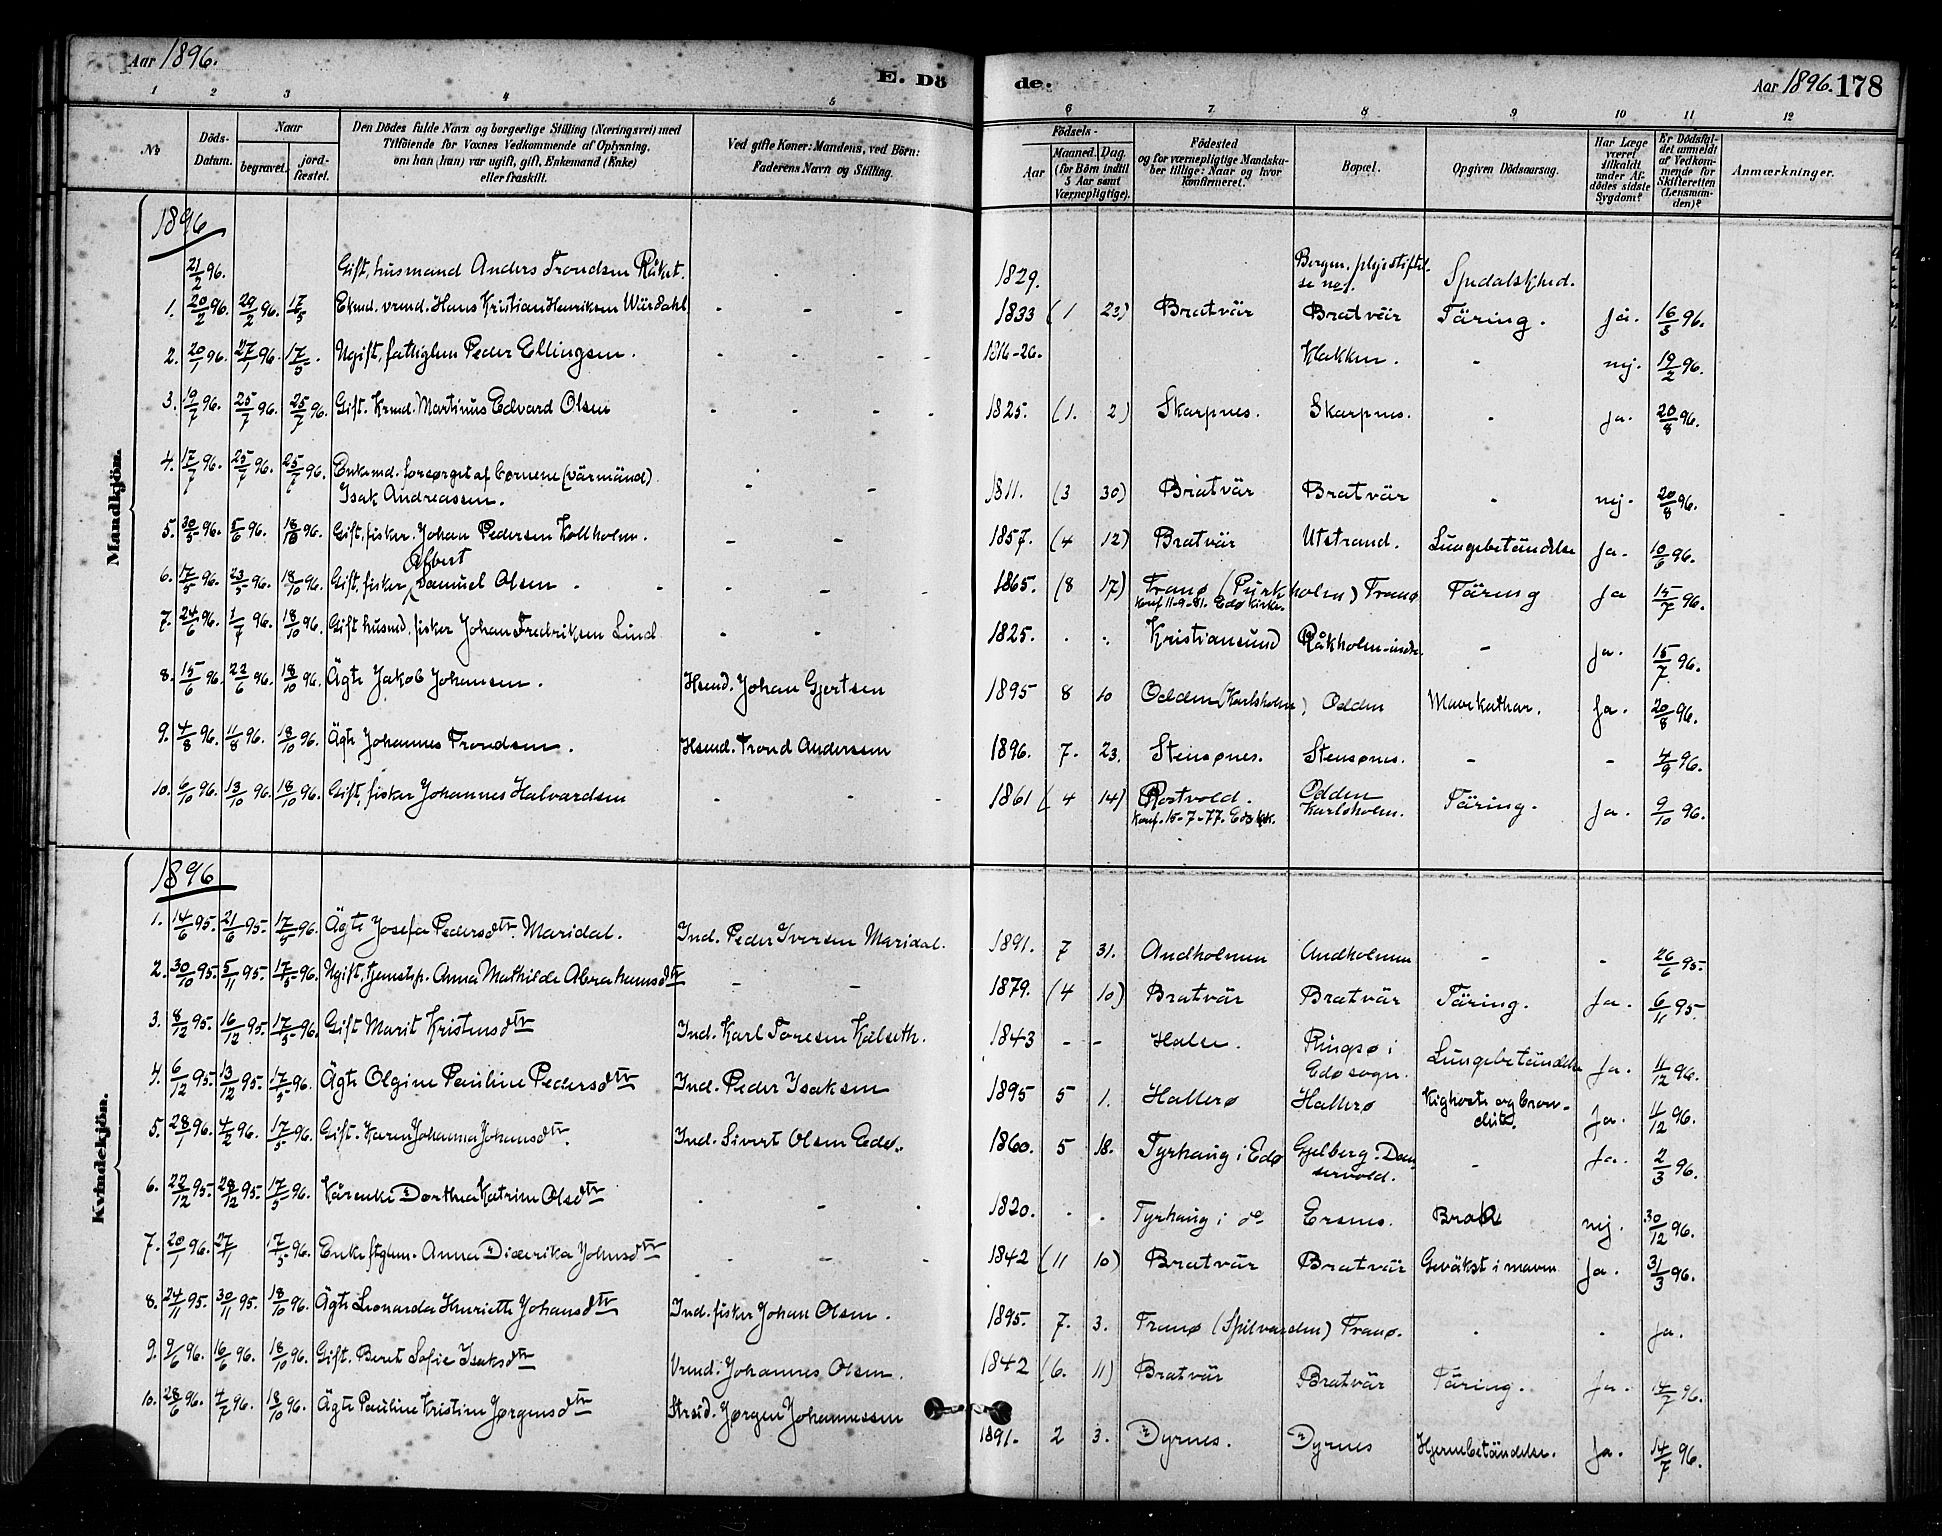 Aar 1896. E. Dö de. Aar 1896. 178
1 2 3 4 5 6 7 8 9 10 11 12
No. Döds-Datum. Naar begravet. jord-fæstet. Den Dödes fulde Navn og borgerlige Stilling (Næringsvei) med Tilföiende for Voxnes Vedkommende af Oplysning, om han (hun) var ugift, gift, Enkemand (Enke) eller fraskilt. Ved gifte Koner: Mandens, ved Börn: Faderens Navn og Stilling. Födsels- Aar Maaned. Dag. (for Börn indtil 5 Aar samt Værnepligtige). Födested og for værnepligtige Mandska-ber tillige: Naar og hvor konfirmeret. Bopæl. Opgiven Dödsaarsag. Har Læge været tilkaldt under Af-dödes sidste Sygdom? Er Dödsfal-det anmeldt af Vedkom-mende for Skifteretten (Lensman-den)? Anmærkninger.
Mandkjön.
1896
21/2 96. Gift, husmand Anders Trondsen Råket. - - 1829. Bergen. plejestiftel-se no 1. Spedalskhed.
1. 20/2 96. 29/2 96. 17/5 Ekmd. vrmd. Hans Kristian Henriksen Wärdahl - - - 1833 (1 23) Bratvär Bratvär Täring. ja. 16/3 96.
2. 20/1 96. 27/1 96. 17/5. Ugift, fattiglem Peder Ellingsen. - - - - 1816-26. Klakken. - nej. 19/2 96.
3. 19/7 96. 25/7 96. 25/7 96. Gift. Krmd. Martinus Edvard Olsen - - - - 1825. (1. 2) Skarpnes. Skarpnes. - ja. 20/8 96.
4. 17/7 96. 25/7 96. 25/7 96. Enkemd. forsørget af börnene (värmänd) Isak Andreassen. - - 1811. (3 30) Bratvär Bratvär - nej. 20/8 96.
5. 30/5 96. 5/6 96. 18/10 96. Gift, fisker. Johan Pedersen Kollholm. - - 1857. (4 12) Bratvär Utstrand. Lungebetändelse Ja. 10/6 96.
6. 17/5 96. 23/5 96. 18/10 96. Gift, fisker Albert Samuel Olsen. - - - 1865. (8 17) Tranø (Purkholm) Konf 11-9-81. Edø kirke. Tranø Täring Ja 15/7 96.
7. 24/6 96. 1/7 96. 18/10 96. Gift husmd. fisker Johan Fredriksen Lind - - 1825. - - Kristiansund Råkholm-indre. - Ja. 15/7 96.
8. 15/6 96. 22/6 96. 18/10 96. Ägte Jakob Johansen. Hsmd. Johan Gjertsen 1895 8 10 Odden (Karlsholm) Odden Mavekathar. Ja. 20/8 96.
9. 4/8 96. 11/8 96. 18/10 96. Ägte Johannes Trondsen. Hsmd. Trond Anderssen 1896. 7. 23. Stensønes. Stensønes. - - 4/9 96.
10. 6/10 96. 13/10 96. 18/10 96. Gift, fisker Johannes Halvardsen - - - 1861 (4 14) Rostvold. Konf. 15-7-77. Edø Odden Karlsholm. Täring. Ja. 9/10 96.
Kvindekjön.
1896
1. 14/6 95. 21/6 95. 17/5 96. Ägte Josefa Pedersdtr. Maridal. Ind. Peder Iversen Maridal. 1891. 7 31. Andholmen Andholmen - - 26/6 95.
2. 30/10 95. 5/11 95. 17/5 96. Ugift, tjenstp. Anna Mathilde Abrahamsdtr - - 1879. (4 10) Bratvär Bratvär Täring. Ja. 6/11 95.
3. 8/12 95. 16/12 95. 17/5 96. Gift Marit Kristensdtr Ind. Karl Toresen Kalseth. 1843 - - Halse. Ringsø i Edø sogn. Lungebetändelse Ja. 11/12 96.
4. 6/12 95. 13/12 95. 17/5 96. Ägte Olgine Pauline Pedersdtr Ind. Peder Isaksen 1895 5 1. Hallerø Hallerø Kighoste og bron-chite. Ja. 11/12 96.
5. 28/1 96. 4/2 96. 17/5 96. Gift. Karen Johanna Johansdtr. Ind. Sivert Olsen Edø. 1860. 5 18. Tyrhaug i Edø Gjelberg. - Ja. 2/3 96.
6. 22/12 95. 28/12 95. 17/5 96. Kårenke Dorthea Katrine Olsdtr - - - 1820. - - Tyrhaug i do Ersnes. Brok nej. 30/12 96.
7. 20/1 96. 27/1 17/5 96. Enke ftglem. Anna Diderika Johnsdtr - - - 1842 (11 10) Bratvär Bratvär Geväkst i maven Ja. 31/3 96.
8. 24/11 95. 30/11 95. 18/10 96. Ägte Leonarda Henriette Johansdtr Ind. fisker Johan Olsen. 1895. 7. 3. Tranø (Spilvarden) Tranø. - - ja.
9. 9/6 96. 16/6 96. 18/10 96. Gift. Beret Sofie Isaksdtr Vrmd. Johannes Olsen. 1842 (6. 11) Bratvär Bratvär Täring. Ja. 14/7 96.
10. 28/6 96. 4/7 96. 18/10 96. Ägte Pauline Kristine Jørgensdtr Strsid. Jørgen Johannessen 1891. 2 3. Dyrnes. Dyrnes Hjernebetändelse. Ja. 14/7 96.